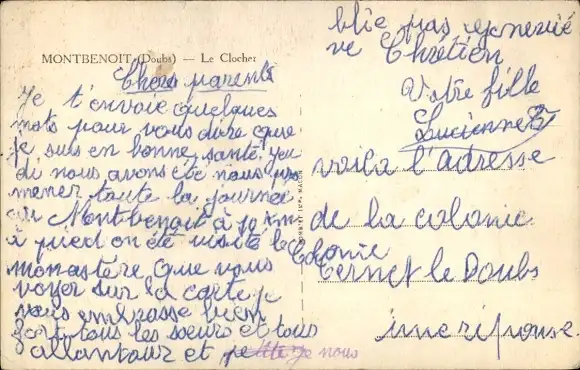 MONTBENOIT (Doubs) — Le Clocher
Chers parents
Je t'envoie quelques
mots pour vous dire que
je suis en bonne santé. jeu
di nous avons été nous pro
mener toute la journée
au Montbenoit à 10 km
à pied on été visité le
monastère que vous
voyer sur la carte je
vous embrasse bien
fort tous les soeurs et tous
allantour et petite je nous
blie pas
Chrétien
Votre fille
Lucienne
voila l'adresse
de la colonie
Colonie
Cernet le Doubs
une réponse.